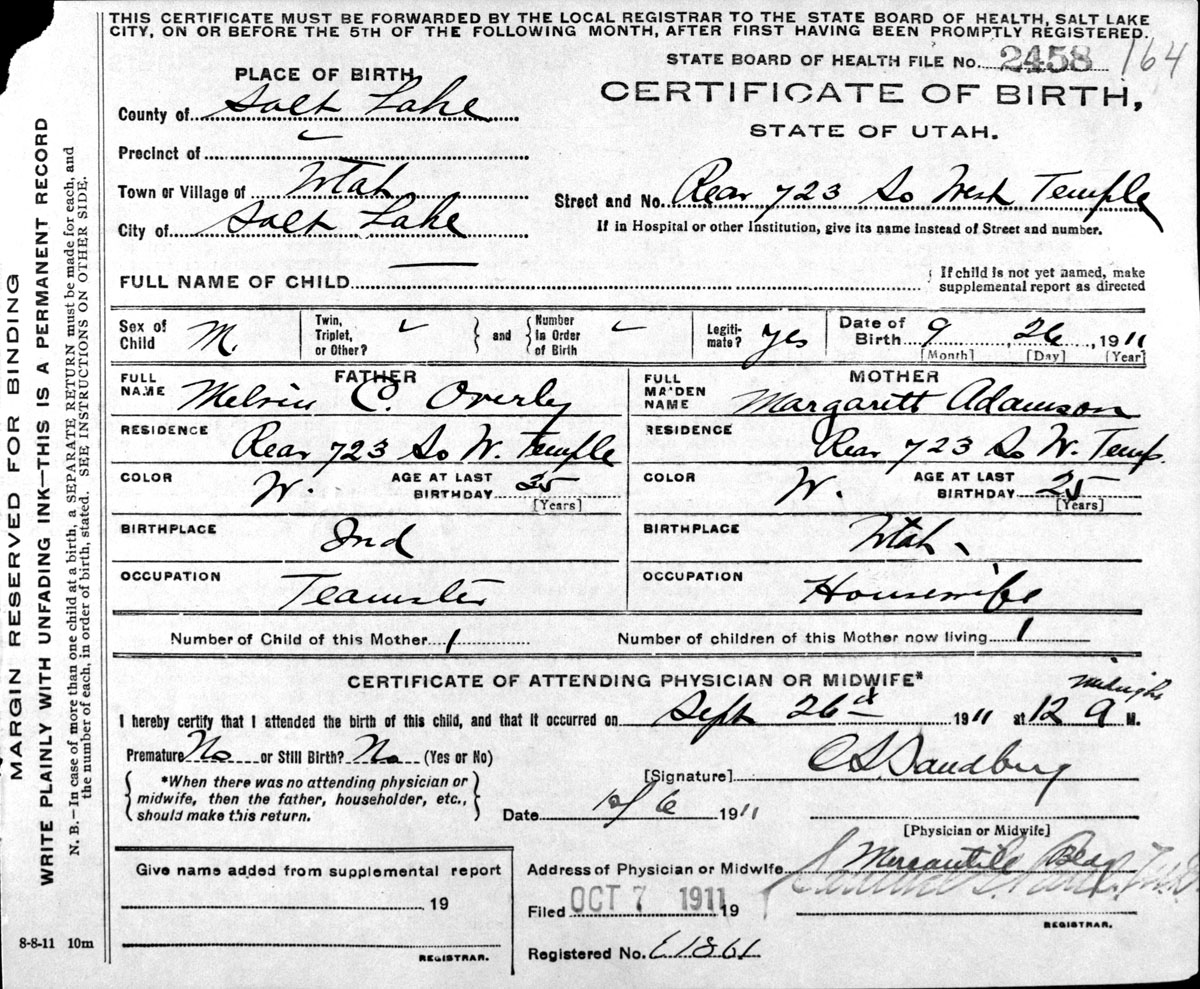 THIS CERTIFICATE MUST BE FORWARDED BY THE LOCAL REGISTRAR TO THE STATE BOARD OF HEALTH, SALT LAKE
CITY, ON OR BEFORE THE 5TH OF THE FOLLOWING MONTH, AFTER FIRST HAVING BEEN PROMPTLY REGISTERED.
STATE BOARD OF HEALTH FILE No. 2458 164
PLACE OF BIRTH
CERTIFICATE OF BIRTH,
STATE OF UTAH.
County of Salt Lake
Precinct of
Town or Village of Utah
City of Salt Lake
Street and No. Rear 723 So West Temple
If in Hospital or other Institution, give its name instead of Street and number.
FULL NAME OF CHILD
If child is not yet named, make
supplemental report as directed
Sex of Child M.
Twin, Triplet, or Other? and Number In Order of Birth
Legiti-mate? yes
Date of Birth 9 26, 1911
[Month] [Day] [Year]
FATHER
FULL NAME Melvin C. Overly
RESIDENCE Rear 723 So W. Temple
COLOR W. AGE AT LAST BIRTHDAY 25
[Years]
BIRTHPLACE Ind
OCCUPATION Teamster
MOTHER
FULL MAIDEN NAME Margarett Adamson
RESIDENCE Rear 723 So W. Temp.
COLOR W. AGE AT LAST BIRTHDAY 25
[Years]
BIRTHPLACE Utah
OCCUPATION Housewife
Number of Child of this Mother 1 Number of children of this Mother now living 1
CERTIFICATE OF ATTENDING PHYSICIAN OR MIDWIFE*
midnight
I hereby certify that I attended the birth of this child, and that it occurred on Sept 26th 1911 at 12 a M.
Premature No or Still Birth? No (Yes or No)
*When there was no attending physician or
midwife, then the father, householder, etc.,
should make this return.
[Signature] C S Sandberg
Date 10/6 1911
[Physician or Midwife]
Give name added from supplemental report
19
REGISTRAR.
Address of Physician or Midwife Mercantile Bldg
Filed OCT 7 1911 19
REGISTRAR.
Registered No. E1861
8-8-11 10m
MARGIN RESERVED FOR BINDING
WRITE PLAINLY WITH UNFADING INK—THIS IS A PERMANENT RECORD
N. B.—In case of more than one child at a birth, a SEPARATE RETURN must be made for each, and
the number of each, in order of birth, stated. SEE INSTRUCTIONS ON OTHER SIDE.